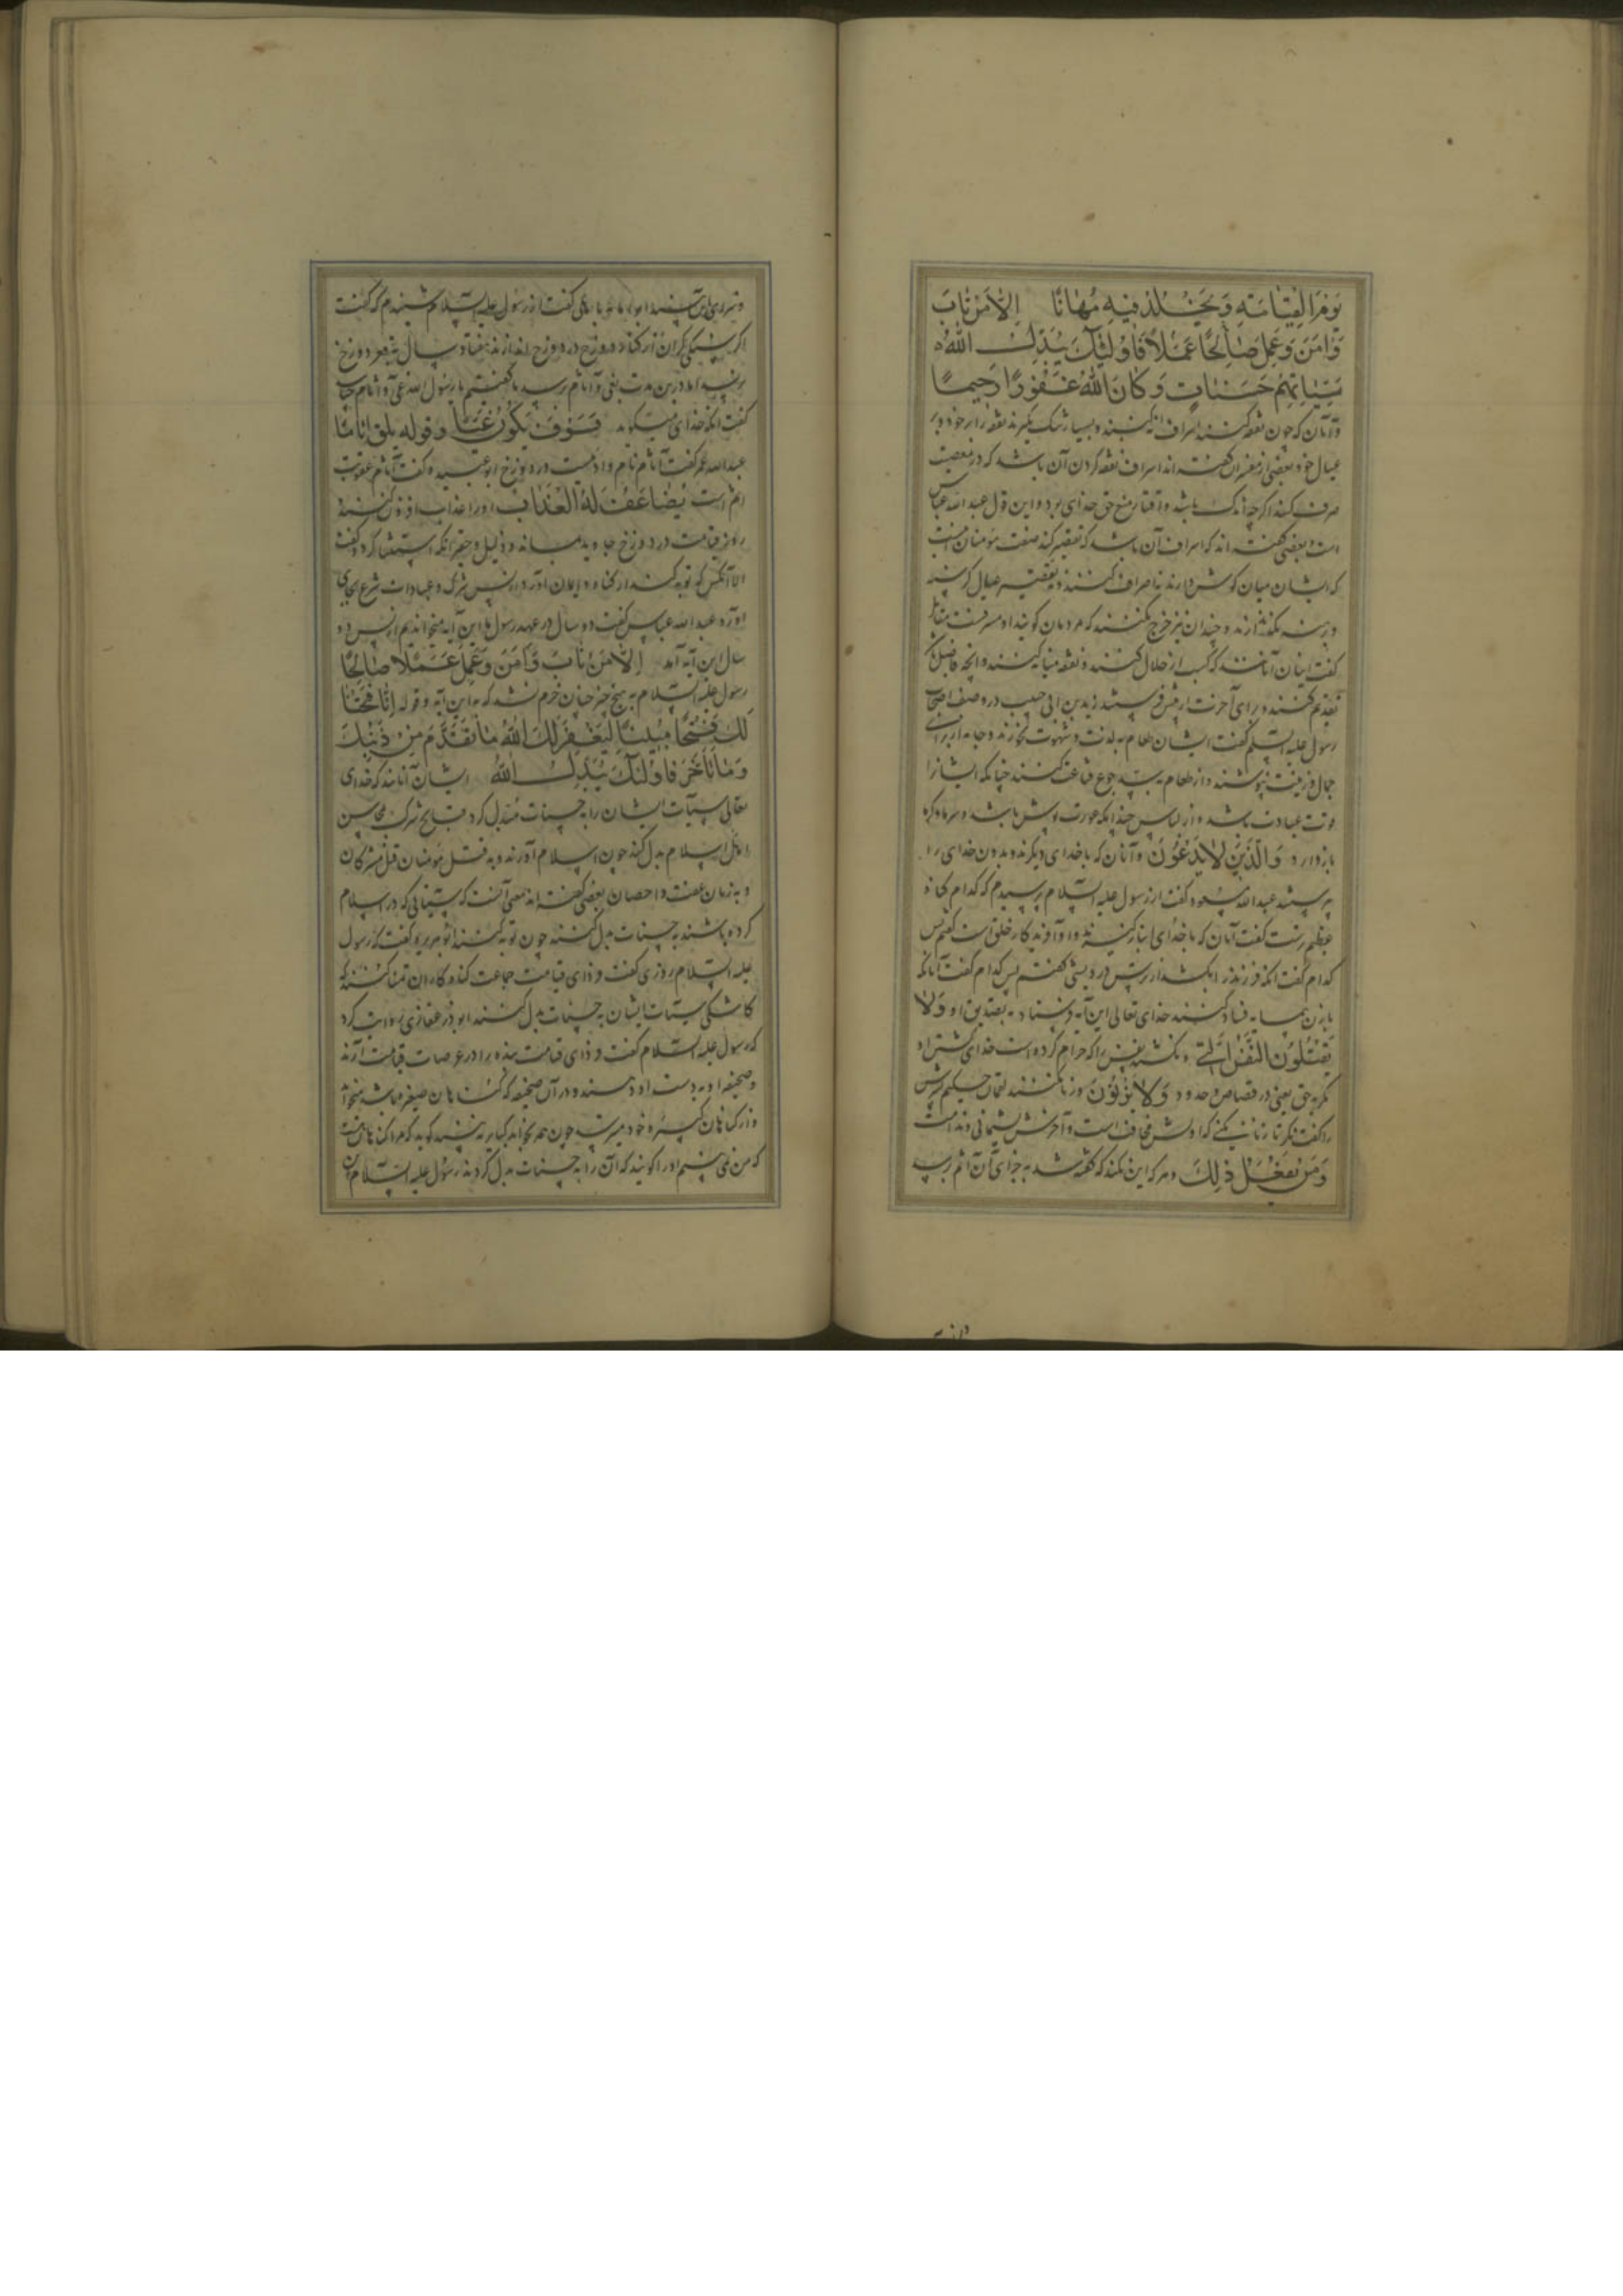 يَوْمَ الْقِيَامَةِ وَيَخْلُدْ فِيهِ مُهَانًا اِلَّا مَنْ تَابَ
وَاٰمَنَ وَعَمِلَ صَالِحًا عَمَلًا فَاُولٰئِكَ يُبَدِّلُ اللّٰهُ
سَيِّئَاتِهِمْ حَسَنَاتٍ وَكَانَ اللّٰهُ غَفُورًا رَحِيمًا
وآنان که چون نفقه کنند اسراف نکنند و بسیار تنک نکیرند نفقه را بر خود و بر
عیال خود بعضی از مفسران کفته اند اسراف نفقه کردن آن باشد که در معصیت
صرف کنند اکرچه اندک باشد و اقتار منع حق خدای بود و این قول عبد الله عباس
است و بعضی کفته اند که اسراف آن باشد که تقصیر کند صفت مؤمنان است
که ایشان میان کوش دارند نه اسراف کنند و نه تقصیر عیال کرسنه
و برهنه نکذارند و چندان نیز خرج نکنند که مردمان کویند او مسرفست مقاتل
کفت اینان آنانند که کسب از حلال کنند و نفقه میانه کنند و آنچه فاضل
تقدیم کنند و برای آخرت از پیش فرستند یزید بن ابی حبیب در وصف اصحاب
رسول علیه السلم کفت ایشان طعام به لذت و شهوت نخورند و جامه از برای
جمال و زینت نپوشند و از طعام به سد جوع قناعت کنند چنانکه ایشانرا
قوت عبادت باشد و از لباس چندانکه عورت پوش باشد و سرما و کرما
باز دارد وَالَّذِينَ لَا يَدْعُونَ وآنان که با خدای دیکرند و بدون خدای را
پرستند عبد الله مسعود کفت از رسول علیه السلام پرسیدم که کدام کناه
عظیم ترست کفت آنان که با خدای انباز کیرند و او آفریدکار خلق است کفتم پس
کدام کفت آنکه فرزند را بکشد از ترس درویشی کفتم پس کدام کفت آنانکه
با زن همسایه فساد کنند خدای تعالی این آیه فرستاد به تصدیق او وَلَا
يَقْتُلُونَ النَّفْسَ الَّتِي و نکشند نفس را که حرام کرده است خدای کشتن او
مکر به حق یعنی در قصاص و حدود وَلَا يَزْنُونَ و زنا نکنند لقمان حکیم پسرش
را کفت نکر تا زنا نکنی که اولش مخافت است و آخرش پشیمانی و ندامت
وَمَنْ يَفْعَلْ ذٰلِكَ و هر که این بکند که کفته شد به جزای آن اثم رسد
کفت از رسول علیه السلام شنیدم که کفت
اکر سنکی کران از کناره دوزخ در دوزخ اندازند هفتاد سال به قعر دوزخ
نرسد اما درین مدت به غی و اثام برسد ما کفتیم یا رسول الله غی و اثام چیست
کفت آنکه خدای میکوید فَسَوْفَ يَلْقَوْنَ غَيًّا وقوله يلق اثاما
عبد الله عمر کفت آثام نام وادیست در دوزخ ابو عبیده کفت آثام عقوبت
اثم است يُضَاعَفْ لَهُ الْعَذَابُ او را عذاب افزون کنند
روز قیامت در دوزخ جاوید بماند و ذلیل و حقیر آنکه استثنا کرد و کفت
الا آنکس که توبه کند از کناه و ایمان آورد از پس شرک و عبادات شرع بجای
آورد عبد الله عباس کفت دو سال در عهد رسول ما این آیه میخواندیم از پس دو
سال این آیه آمد اِلَّا مَنْ تَابَ وَاٰمَنَ وَعَمِلَ عَمَلًا صَالِحًا
رسول علیه السلام به هیچ چیز چنان خرم نشد که به این آیه و قوله اِنَّا فَتَحْنَا
لَكَ فَتْحًا مُبِينًا لِيَغْفِرَ لَكَ اللّٰهُ مَا تَقَدَّمَ مِنْ ذَنْبِكَ
وَمَا تَأَخَّرَ فَاُولٰئِكَ يُبَدِّلُ اللّٰهُ ایشان آنانند که خدای
تعالی سیآت ایشان را به حسنات مبدل کرد قبایح شرک به محاسن
اسلام بدل کند چون اسلام آورند و به قتل مؤمنان قتل مشرکان
و به زنا عفت و احصان بعضی کفته اند معنی آنست که سیئاتی که در اسلام
کرده باشند به حسنات بدل کنند چون توبه کنند ابو هریره کفت که رسول
علیه السلام روزی کفت فردای قیامت جماعت کناه کاران تمنا کنند که
کاشکی سیئات ایشان به حسنات بدل کنند ابو ذر غفاری روایت کرد
که رسول علیه السلام کفت فردای قیامت بنده را در عرصات قیامت آرند
و صحیفه او به دست او دهند و در آن صحیفه که کناهان صغیره باشد میخواند
و از کناهان کبیره خود میترسد چون همه بخواند کبایر نبیند کوید که مرا کناهان هست
که من نمی بینم او را کویند که آن را به حسنات بدل کردند رسول علیه السلام آن